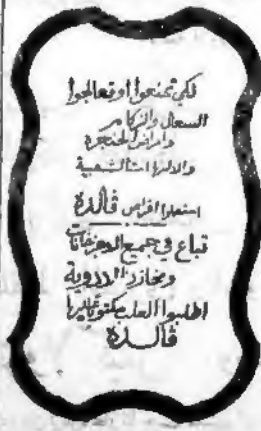 لكي تمنعوا او تعالجوا
السعال والزكام
وامراض الحنجرة
والالتهابات الشعبية
استعملوا اقراص ڤالدة
تباع في جميع الاجزاخانات
ومخازن الادوية
اطلبوا العلب مكتوبا عليها
ڤالدة